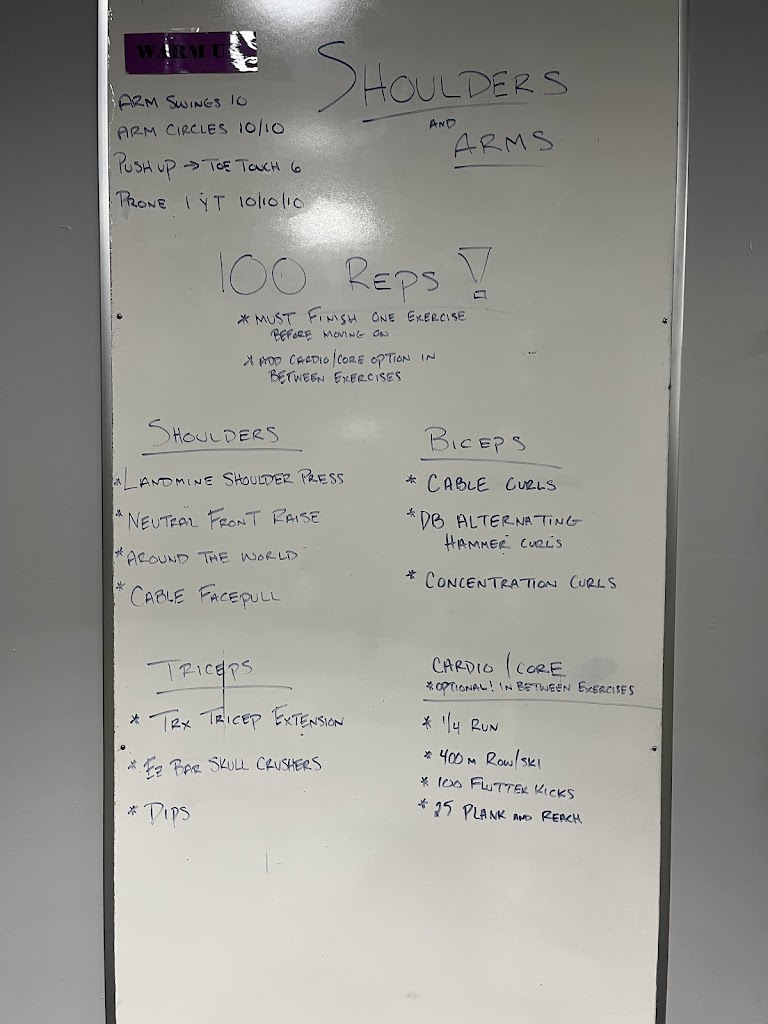 WARM U
SHOULDERS
AND
ARMS
ARM SWINGS 10
ARM CIRCLES 10/10
PUSH UP → TOE TOUCH 6
PRONE I Y T 10/10/10
100 REPS!
* MUST FINISH ONE EXERCISE
BEFORE MOVING ON
* ADD CARDIO/CORE OPTION IN
BETWEEN EXERCISES
SHOULDERS
* LANDMINE SHOULDER PRESS
* NEUTRAL FRONT RAISE
* AROUND THE WORLD
* CABLE FACEPULL
BICEPS
* CABLE CURLS
* DB ALTERNATING
HAMMER CURLS
* CONCENTRATION CURLS
TRICEPS
* TRX TRICEP EXTENSION
* EZ BAR SKULL CRUSHERS
* DIPS
CARDIO/CORE
* OPTIONAL! IN BETWEEN EXERCISES
* 1/4 RUN
* 400m ROW/SKI
* 100 FLUTTER KICKS
* 25 PLANK AND REACH